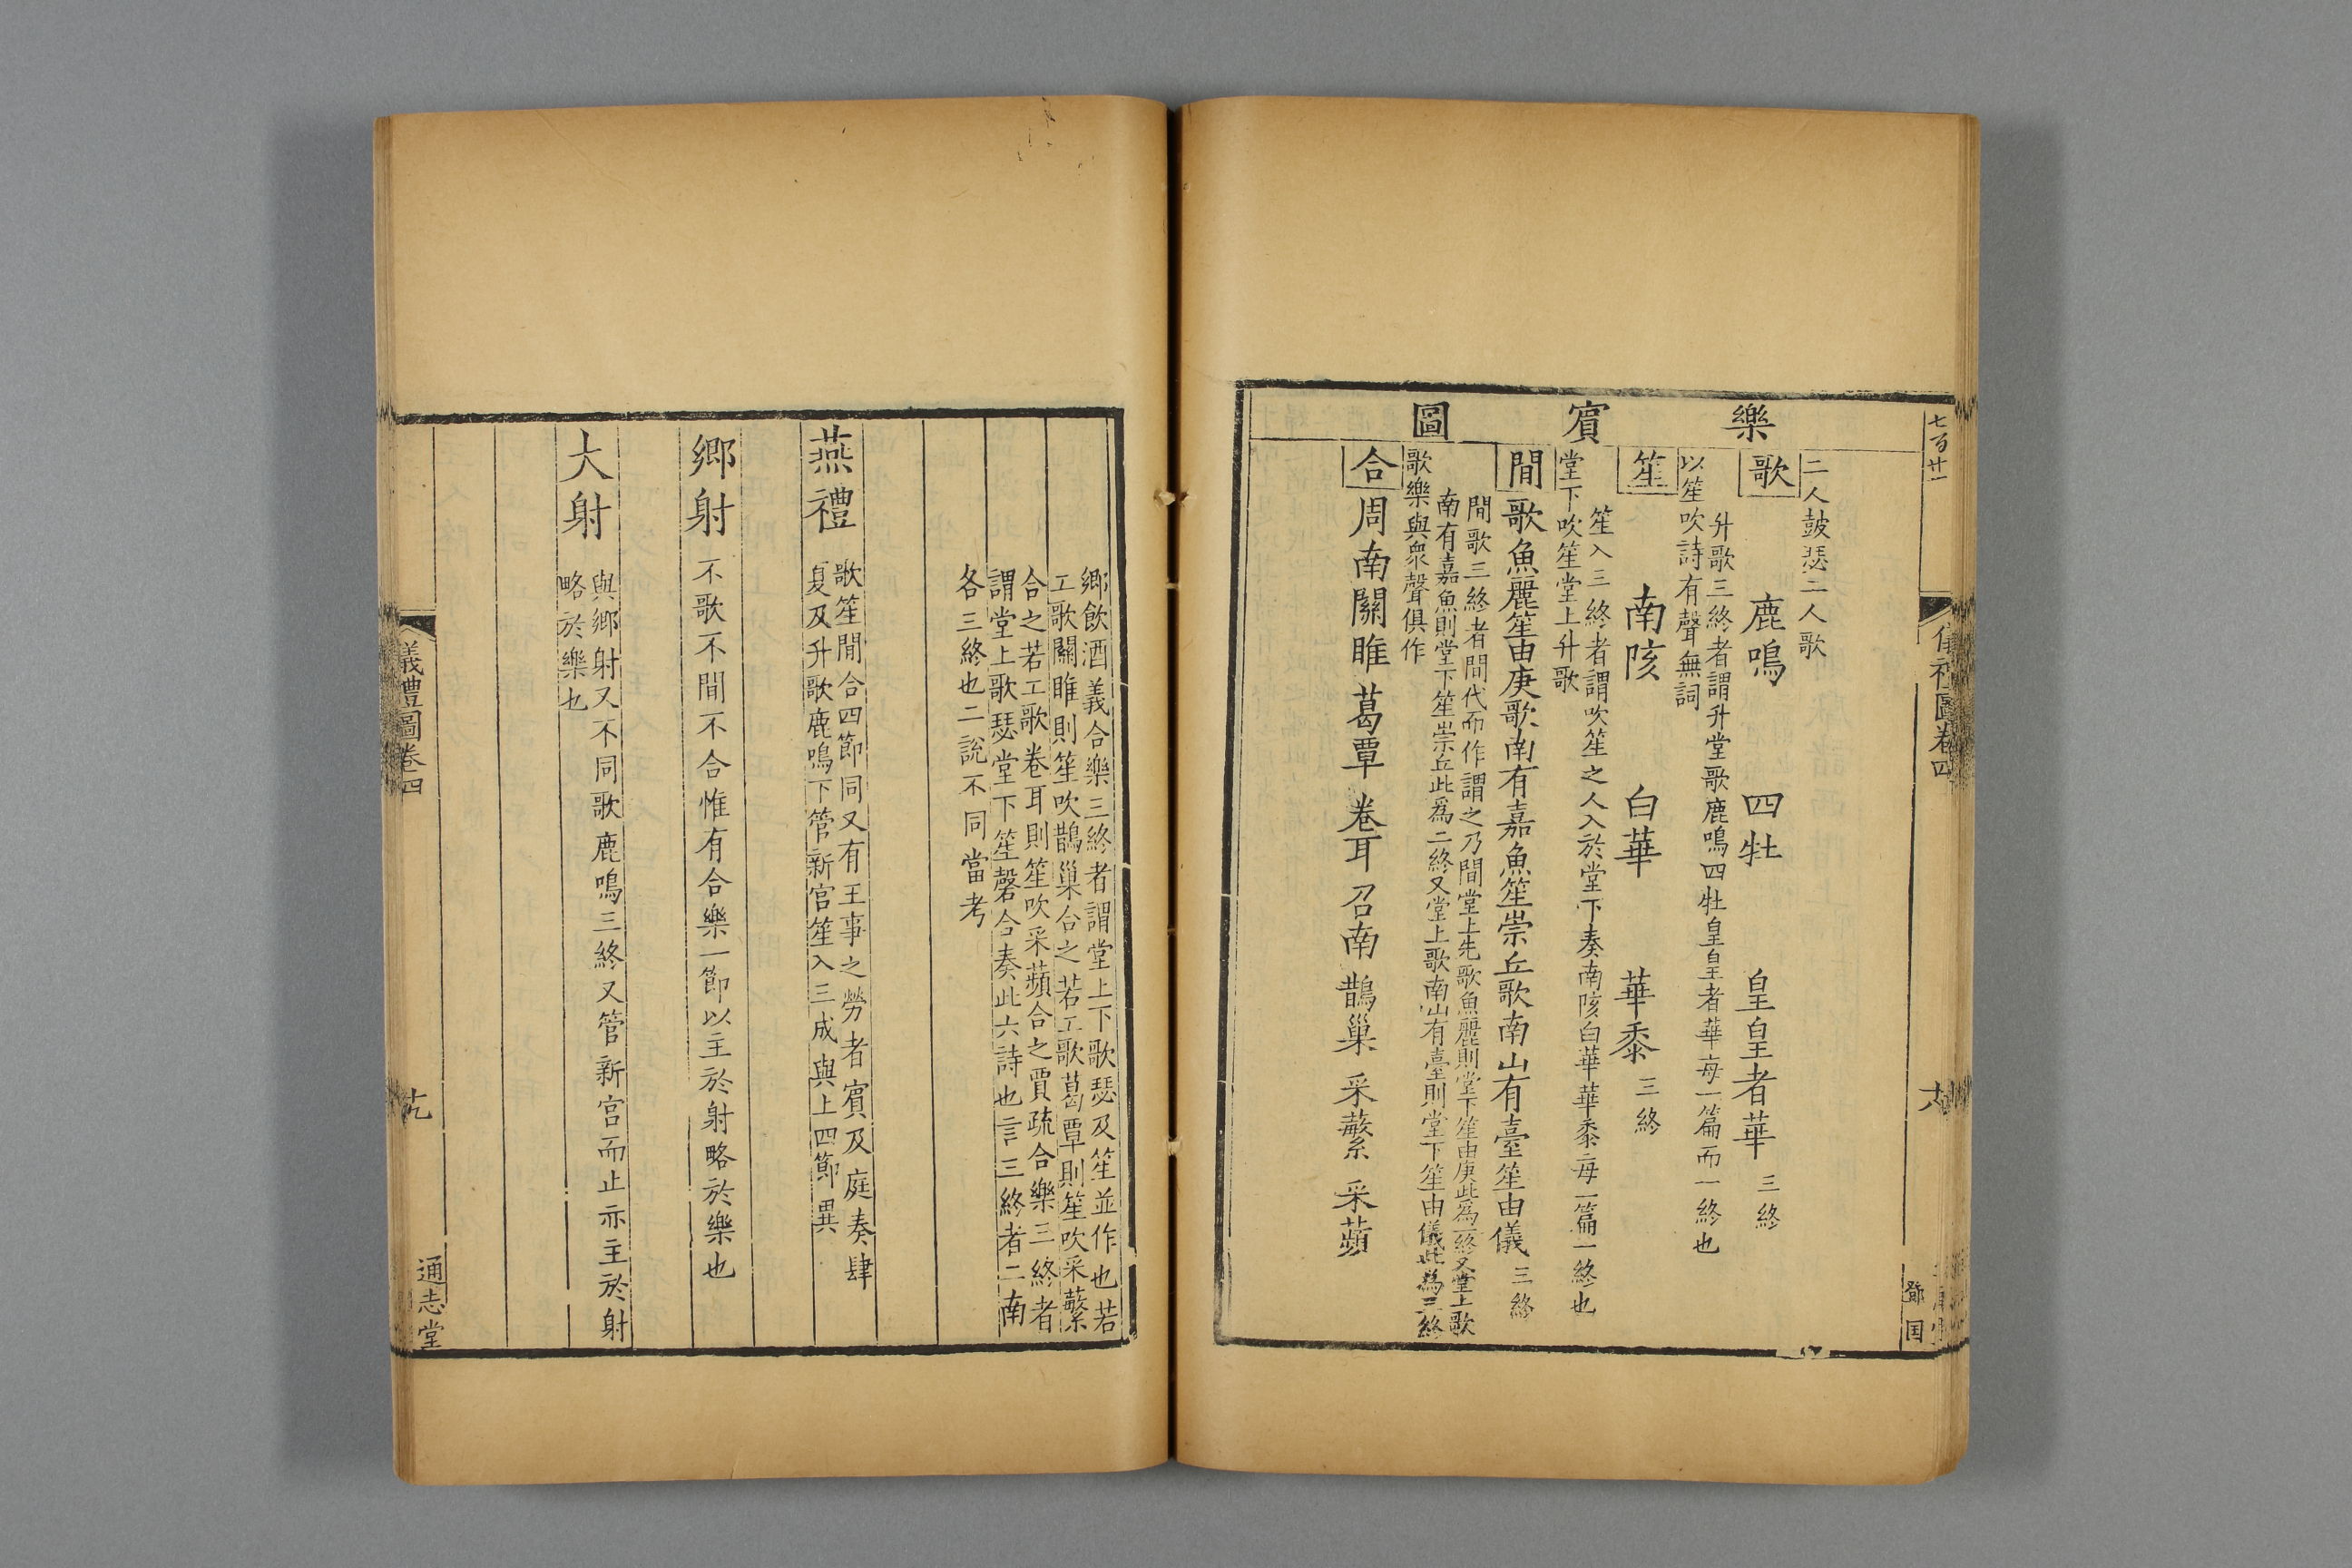 七百廿一
儀禮圖卷四
鄧国
樂賔圖
二人鼓瑟二人歌
歌 鹿鳴 四牡 皇皇者華 三終
升歌三終者謂升堂歌鹿鳴四牡皇皇者華每一篇而一終也
以笙吹詩有聲無詞
笙 南陔 白華 華黍 三終
笙入三終者謂吹笙之人入於堂下奏南陔白華華黍每一篇一終也
堂下吹笙堂上升歌
間 歌魚麗笙由庚歌南有嘉魚笙崇丘歌南山有臺笙由儀 三終
間歌三終者間代而作謂之乃間堂上先歌魚麗則堂下笙由庚此為一終又堂上歌
南有嘉魚則堂下笙崇丘此爲二終又堂上歌南山有臺則堂下笙由儀此為三終
歌樂與衆聲俱作
合 周南關雎 葛覃 卷耳 召南 鵲巢 采蘩 采蘋
鄉飲酒義合樂三終者謂堂上下歌瑟及笙並作也若
工歌關雎則笙吹鵲巢合之若工歌葛覃則笙吹采蘩
合之若工歌卷耳則笙吹采蘋合之賈疏合樂三終者
謂堂上歌瑟堂下笙磬合奏此六詩也言三終者二南
各三終也二說不同當考
燕禮 歌笙間合四節同又有王事之勞者賓及庭奏肆
夏及升歌鹿鳴下管新宮笙入三成與上四節異
鄉射 不歌不間不合惟有合樂一節以主於射略於樂也
大射 與鄉射又不同歌鹿鳴三終又管新宮而止亦主於射
略於樂也
儀禮圖卷四
通志堂